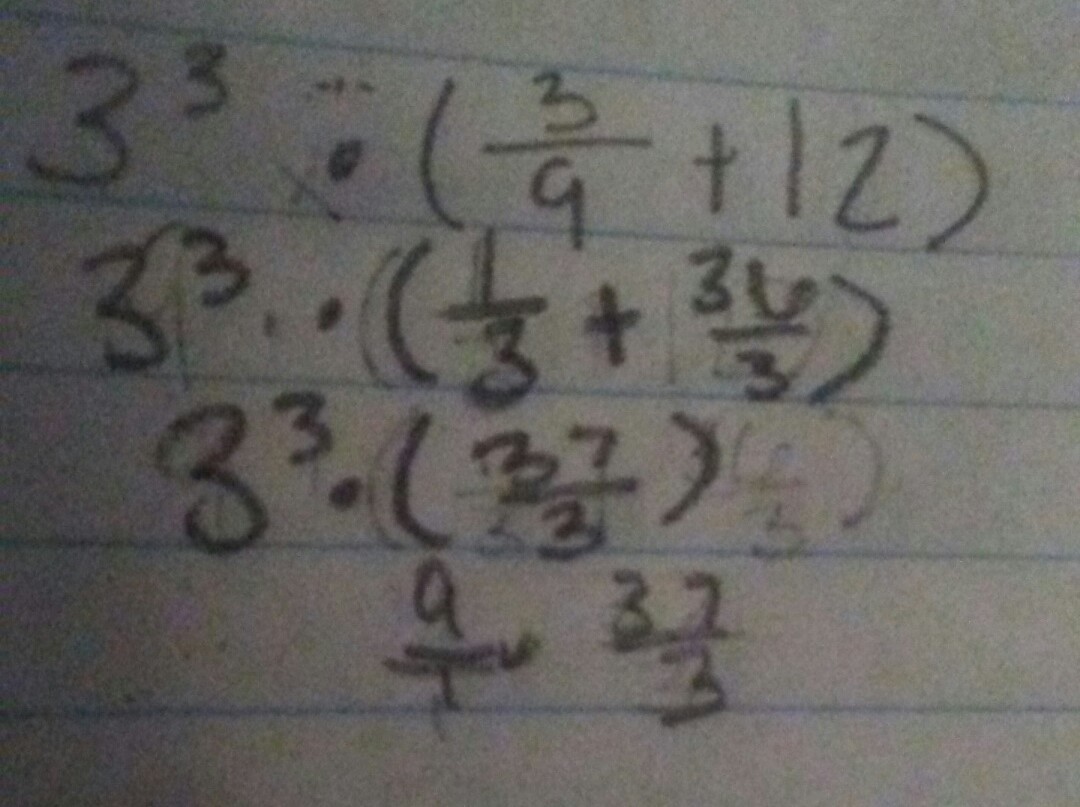 3³ · (3/9 + 12)
3³ · (1/3 + 36/3)
3³ · (37/3)
9/1 · 37/3